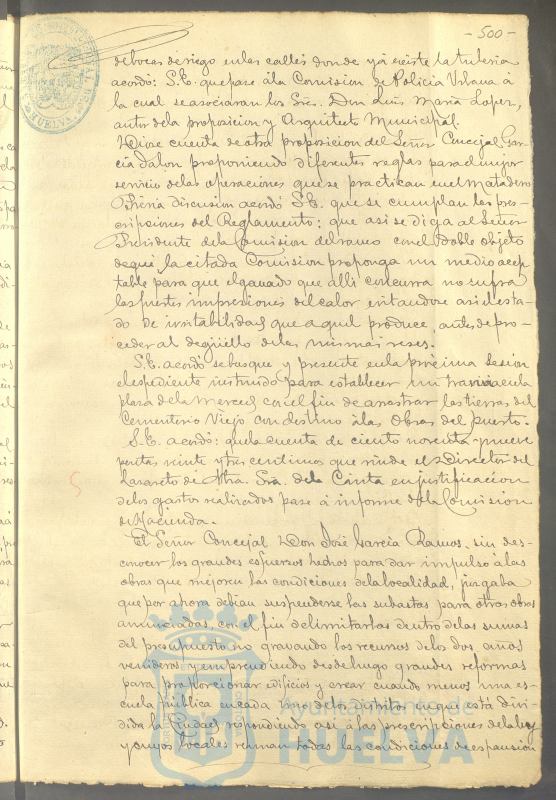 -500-
de bocas de riego en las calles donde ya existe la tuberia
acordó: S.E. que pase á la Comision de Policia Urbana á
la cual se asociaran los Sres. Don Luis Maria Lopez,
autor de la proposicion y Arquitecto Municipal.
Diose cuenta de otra proposicion del Señor Concejal Gar
cia dalon proponiendo diferentes reglas para el mejor
servicio de las operaciones que se practican en el Matadero
Prévia discusion acordó S.E. que se cumplan las pres-
cripciones del Reglamento: que asi se diga al Señor
Presidente de la Comision del ramo con el doble objeto
de que la citada Comision proponga un medio acep
table para que el ganado que alli concurra no sufra
las fuertes impresiones del calor evitandose asi el esta-
do de irritabilidad que aquel produce, antes de pro-
ceder al degüello de las mismas reses.
S.E. acordó se busque y presente en la próxima Sesion
el espediente instruido para establecer un tranvia en la
plaza de la Merced con el fin de arrastrar las tierras del
Cementerio Viejo con destino á las Obras del puerto.
S.E. acordó: que la cuenta de ciento noventa y nueve
pesetas veinte y tres centimos que rinde el Director del
Lazareto de Ntra. Sra. de la Cinta en justificacion
de los gastos realizados pase á informe de la Comision
de Hacienda.
El Señor Concejal Don José Garcia Ramos, sin des-
conocer los grandes esfuerzos hechos para dar impulso á las
obras que mejoren las condiciones de la localidad, juzgaba
que por ahora debian suspenderse las subastas para otras obras
anunciadas, con el fin de limitarlas dentro de las sumas
del presupuesto no gravando los recursos de los dos años
venideros y emprendiendo desde luego grandes reformas
para proporcionar edificios y crear cuando menos una es-
cuela pública en cada uno de los distritos en que está divi-
dida la Ciudad respondiendo asi á las prescripciones de la ley
y cuyos locales reunan todas las condiciones de espansion
Ayuntamiento de
HUELVA